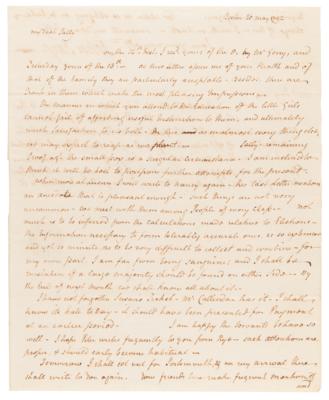 Boston 20 May 1792
my dear Sally
on the 16th Inst. I recd yours of the 8. by Mr Gerry, and
Saturday yours of the 13th — as two letters upon one of your Health and of
that of the family they are particularly acceptable — besides there are
traits in them which make the most pleasing Impressions —
The manner in which you allude to the Education of the little Girls
cannot fail of affording useful Instruction to them, and ultimately
much Satisfaction to us both — in this as in almost every thing else,
we may expect to reap as we plant. — Sally remaining
proof agt the small pox is a singular Circumstance — I am inclined to
think it will be best to postpone further attempts, for the present.
when more at leisure I will write to Nancy again — her last letter was in
an easy style that is pleasant enough — such things are not very
common — we meet with them among People of every Shape — not
much is to be inferred from the calculations made relative to Elections —
the information necessary to form tolerably accurate ones, is so extensive
and yet so minute as to be very difficult to collect and combine — for
my own part I am far from being sanguine, and I shall be
mistaken if a large majority should be found on either side — By
the End of next month we shall know all about it. —
I have not forgotten Susans Ticket — Mr has it — I shall
write to him to day — it should have been presented for Payment
at an earlier period — I am happy the Servants behave so
well — I hope Peter walks frequently to you from Rye — such attentions are
proper, & should early become habitual —
Tomorrow I shall set out for Portsmouth, & on my arrival there
shall write to you again. Your friends here make frequent mention of you
and